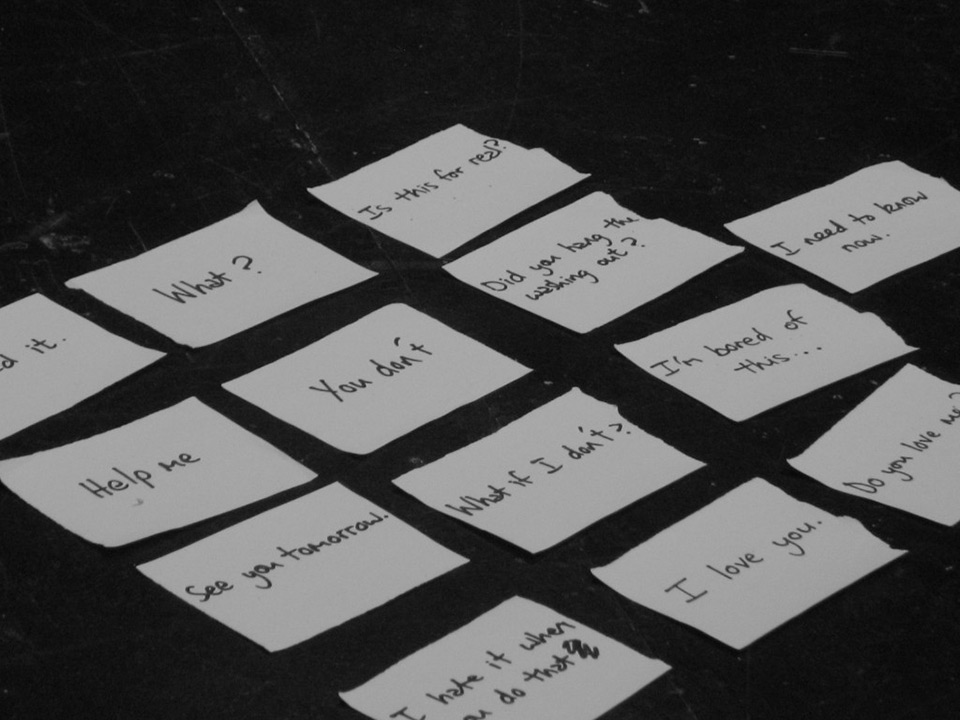 Is this for real?
What?
Did you hang the
washing out?
I need to know
now.
it.
You don't
I'm bored of
this...
Help me
What if I don't?
Do you love me?
See you tomorrow.
I love you.
I hate it when
do that